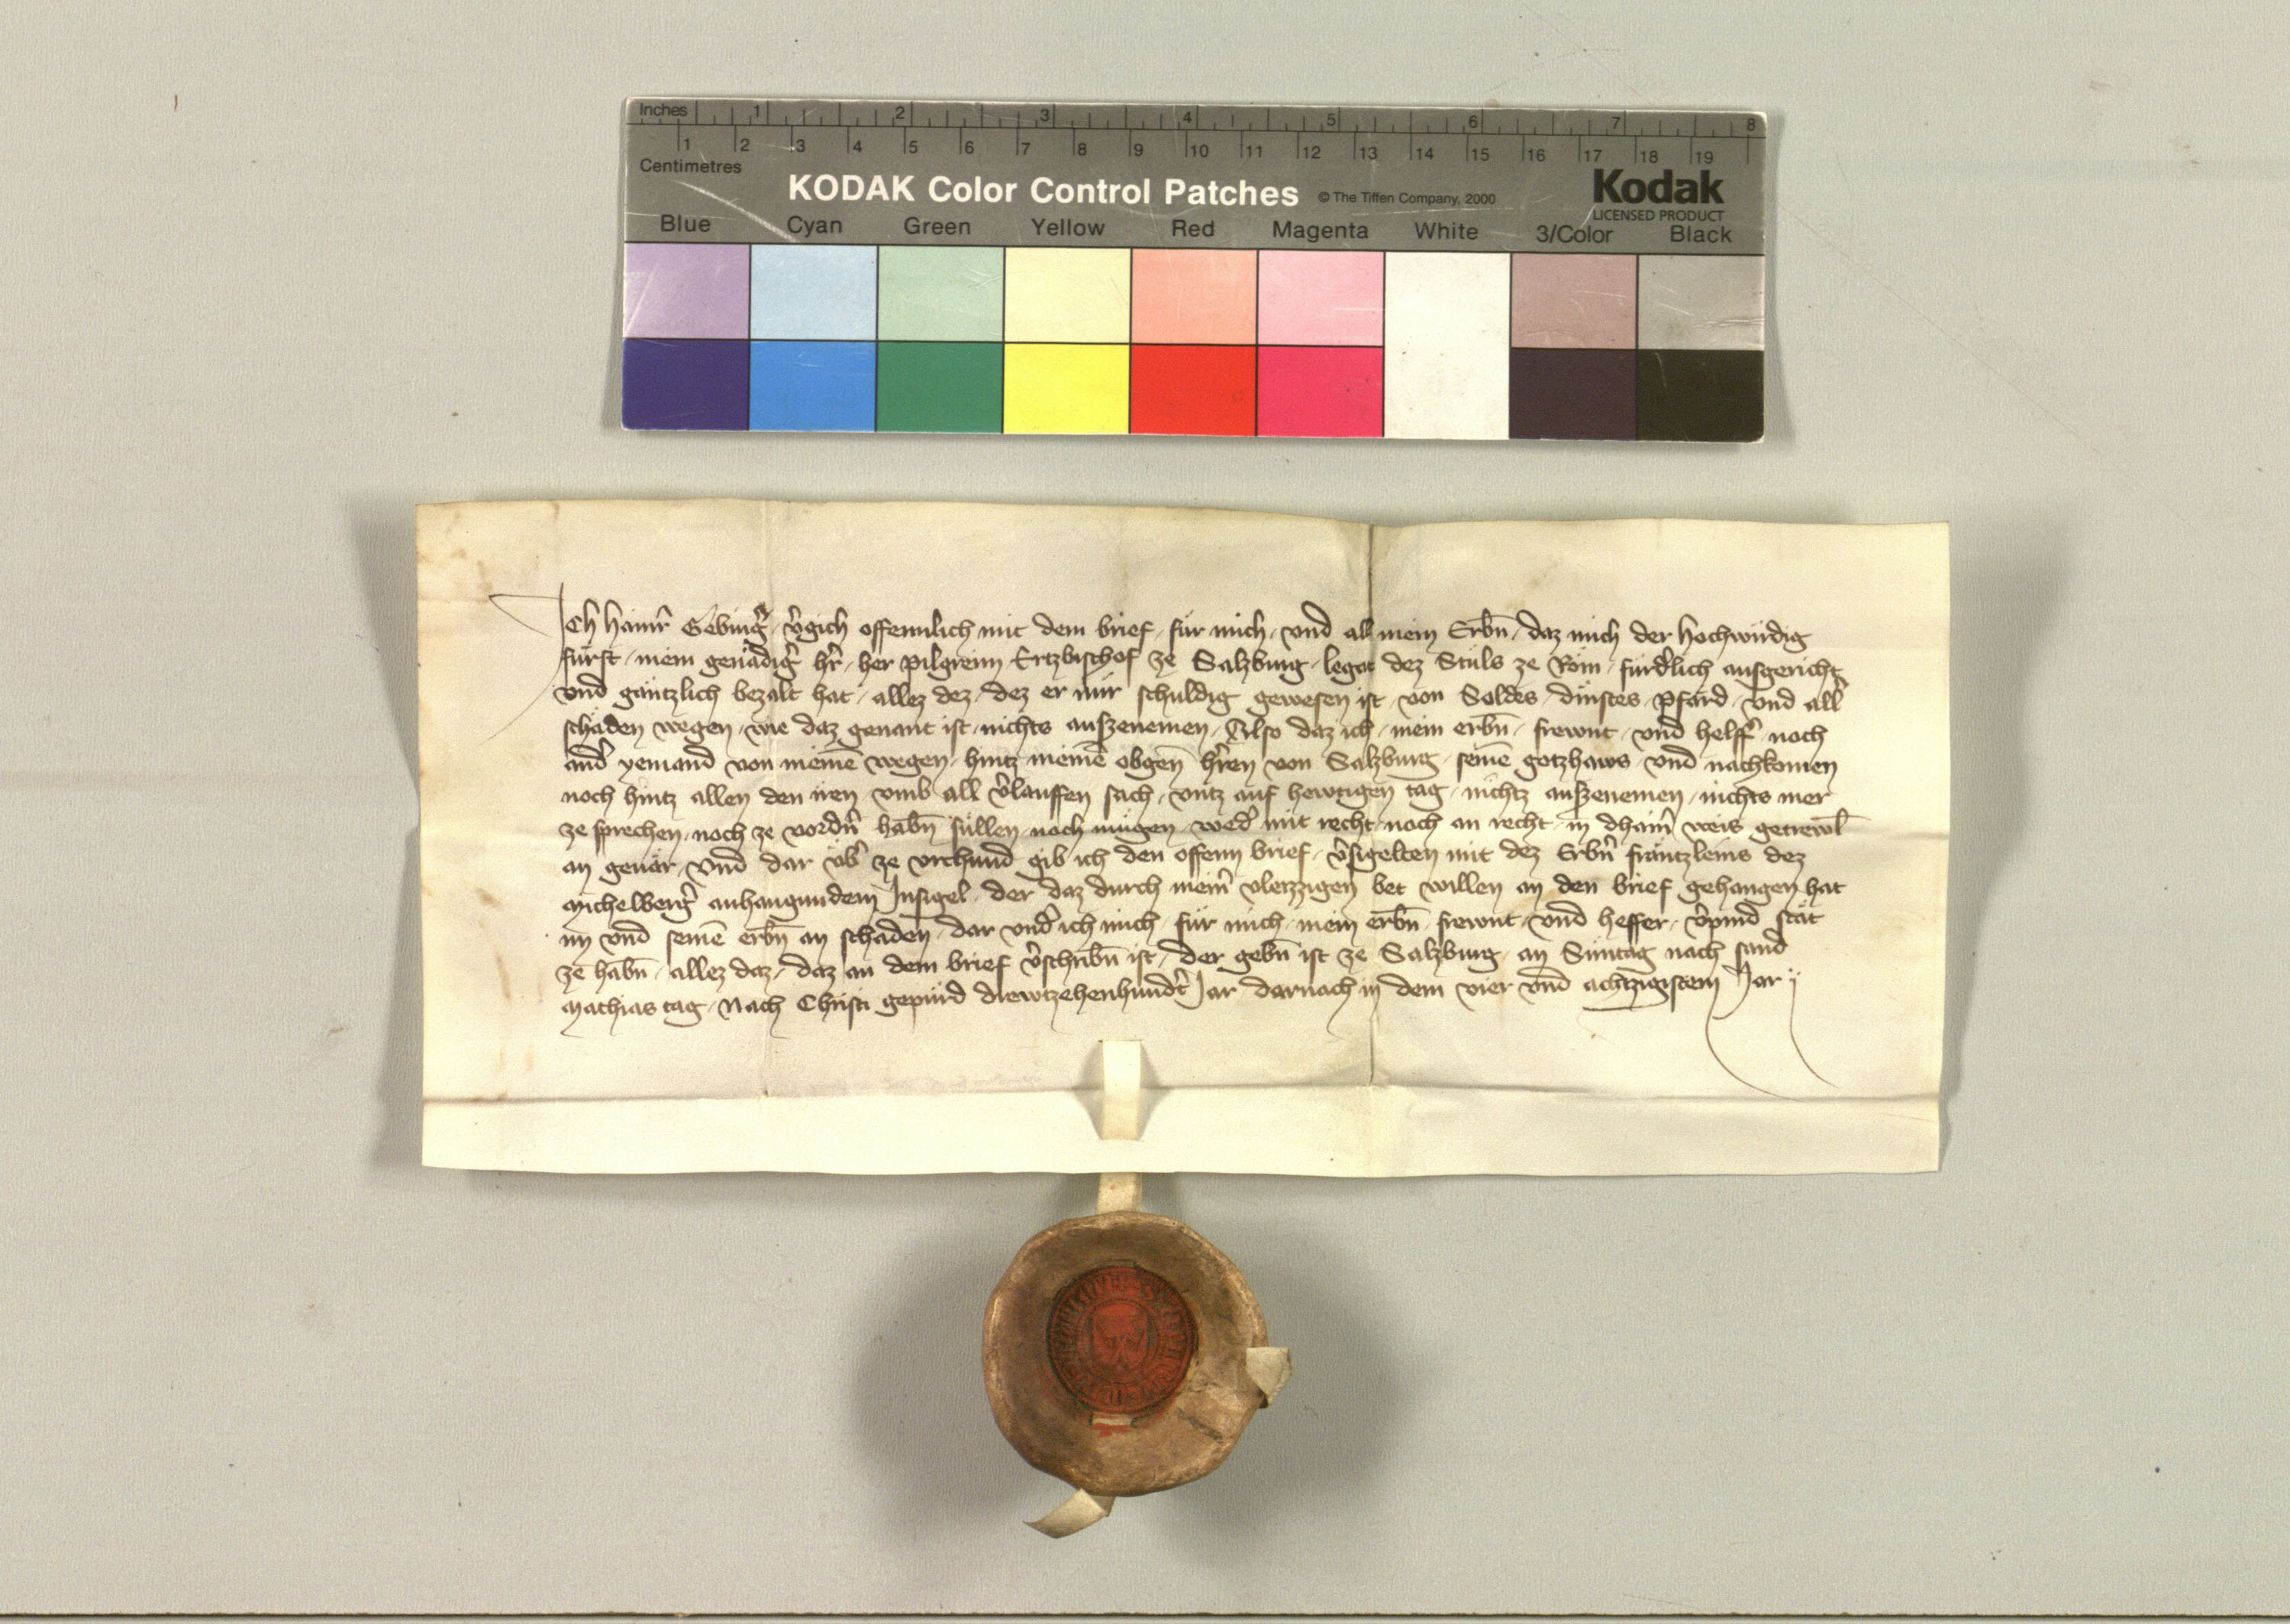 Inches 1 2 3 4 5 6 7 8
1 2 3 4 5 6 7 8 9 10 11 12 13 14 15 16 17 18 19
Centimetres
KODAK Color Control Patches © The Tiffen Company, 2000 Kodak
LICENSED PRODUCT
Blue Cyan Green Yellow Red Magenta White 3/Color Black
Ich Hainr̄ Gebing̃ v̾gich offennlich mit dem brief für mich vnd all mein Erbn̄ daz mich der hochwirdig
fürst mein genädig̾ hr̄ her Pilgreim Ertzbischof ze Salzburg legat dez Stůls ze Rom fürd̾lich ausgericht
vnd gäntzlich bezalt hat allez dez dez er mir schuldig gewesen ist von Soldes dinstes Pfärd vnd all̾
schäden wegen wie daz genant ist nichts auszenemen Also daz ich mein erbn̄ frewnt vnd helff̾ noch
and̾ yemand von meinē wegen hintz meinē obgen̄ hr̄ren von Salzburg seinē gotzhaws vnd nachkomen
noch hintz allen den iren vmb all v̾lauffen sach vntz auf hewtigen tag nichtz auszenemen nichts mer
ze sprechen noch ze vordn̄ habn̄ süllen noch mügen wed̾ mit recht noch an recht in dhain̾ weis getrewl̄
an geuär vnd dar üb̾ ze vrchund gib ich den offenn brief v̾sigelten mit dez Erbn̾ fräntzleins dez
Michelberg̾ anhangundem Insigel der daz durch mein̾ vleizzigen bet willen an den brief gehangen hat
im vnd seinē erbn̄ an schaden dar vnd̾ ich mich für mich mein erbn̄ frewnt vnd heffer v̾pind stät
ze habn̄ allez daz daz an dem brief v̾schribn̄ ist der gebn̄ ist ze Salzburg an Suntag nach sand
Mathias tag Nach Christi gepürd drewtzehenhund̾t Jar darnach in dem vier vnd achtzigistem Jar